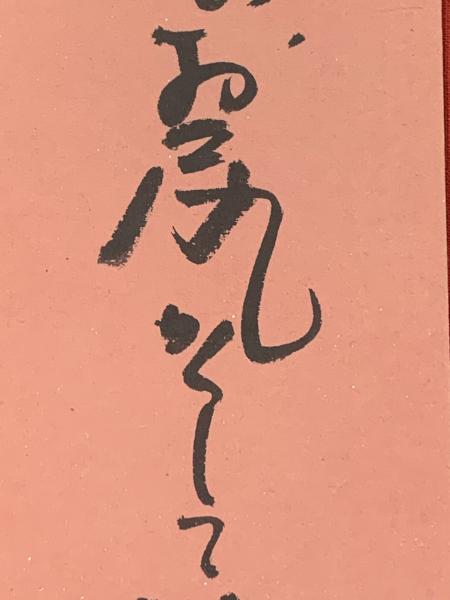 お尻そして